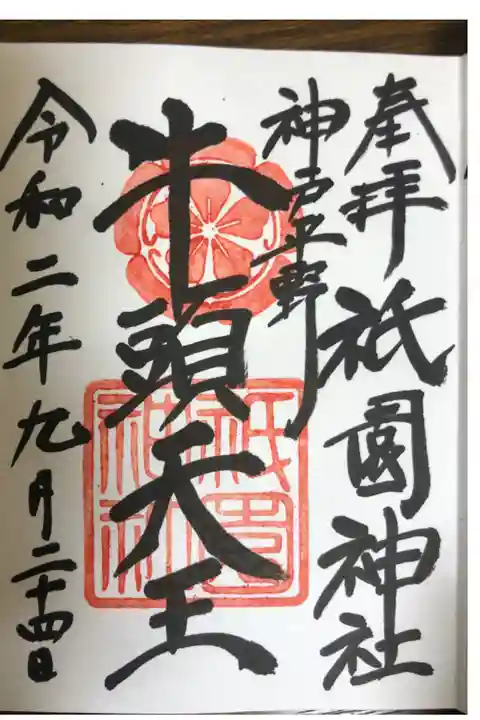 奉拝 祇園神社
神戸平野
牛頭天王
令和二年九月二十四日
祇園神社